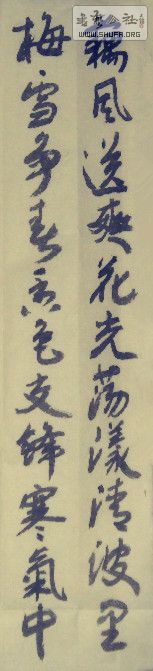 书法公社
WWW.SHUFA.ORG
藕风送爽花光荡漾清波里
梅雪争春香色交锋寒氣中